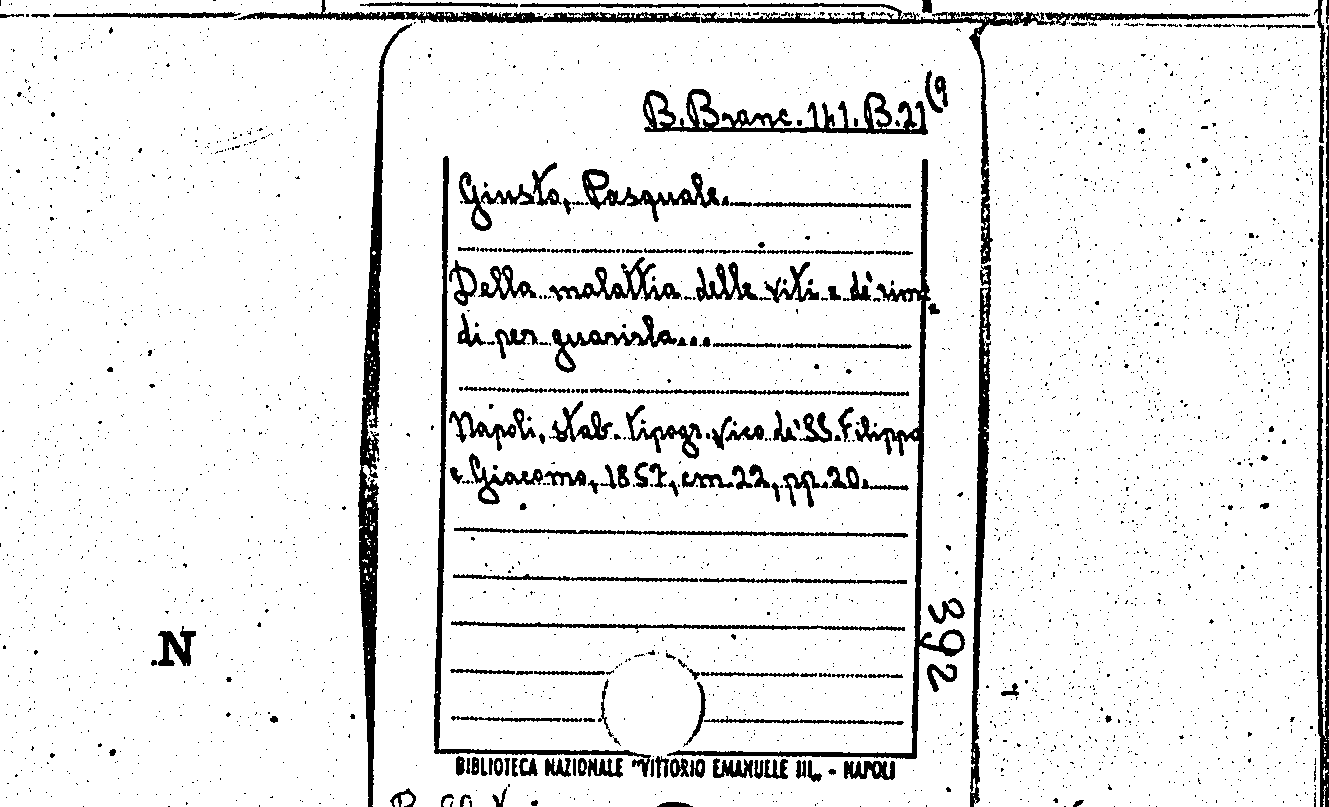 B. Branc. 141. B. 21 (9
Giusto, Pasquale.
Della malattia delle viti e de' rime-
di per guarirla...
Napoli, stab. tipogr. vico de' SS. Filippo
e Giacomo, 1857, cm. 22, pp. 20.
392
N
BIBLIOTECA NAZIONALE "VITTORIO EMANUELE III„ - NAPOLI